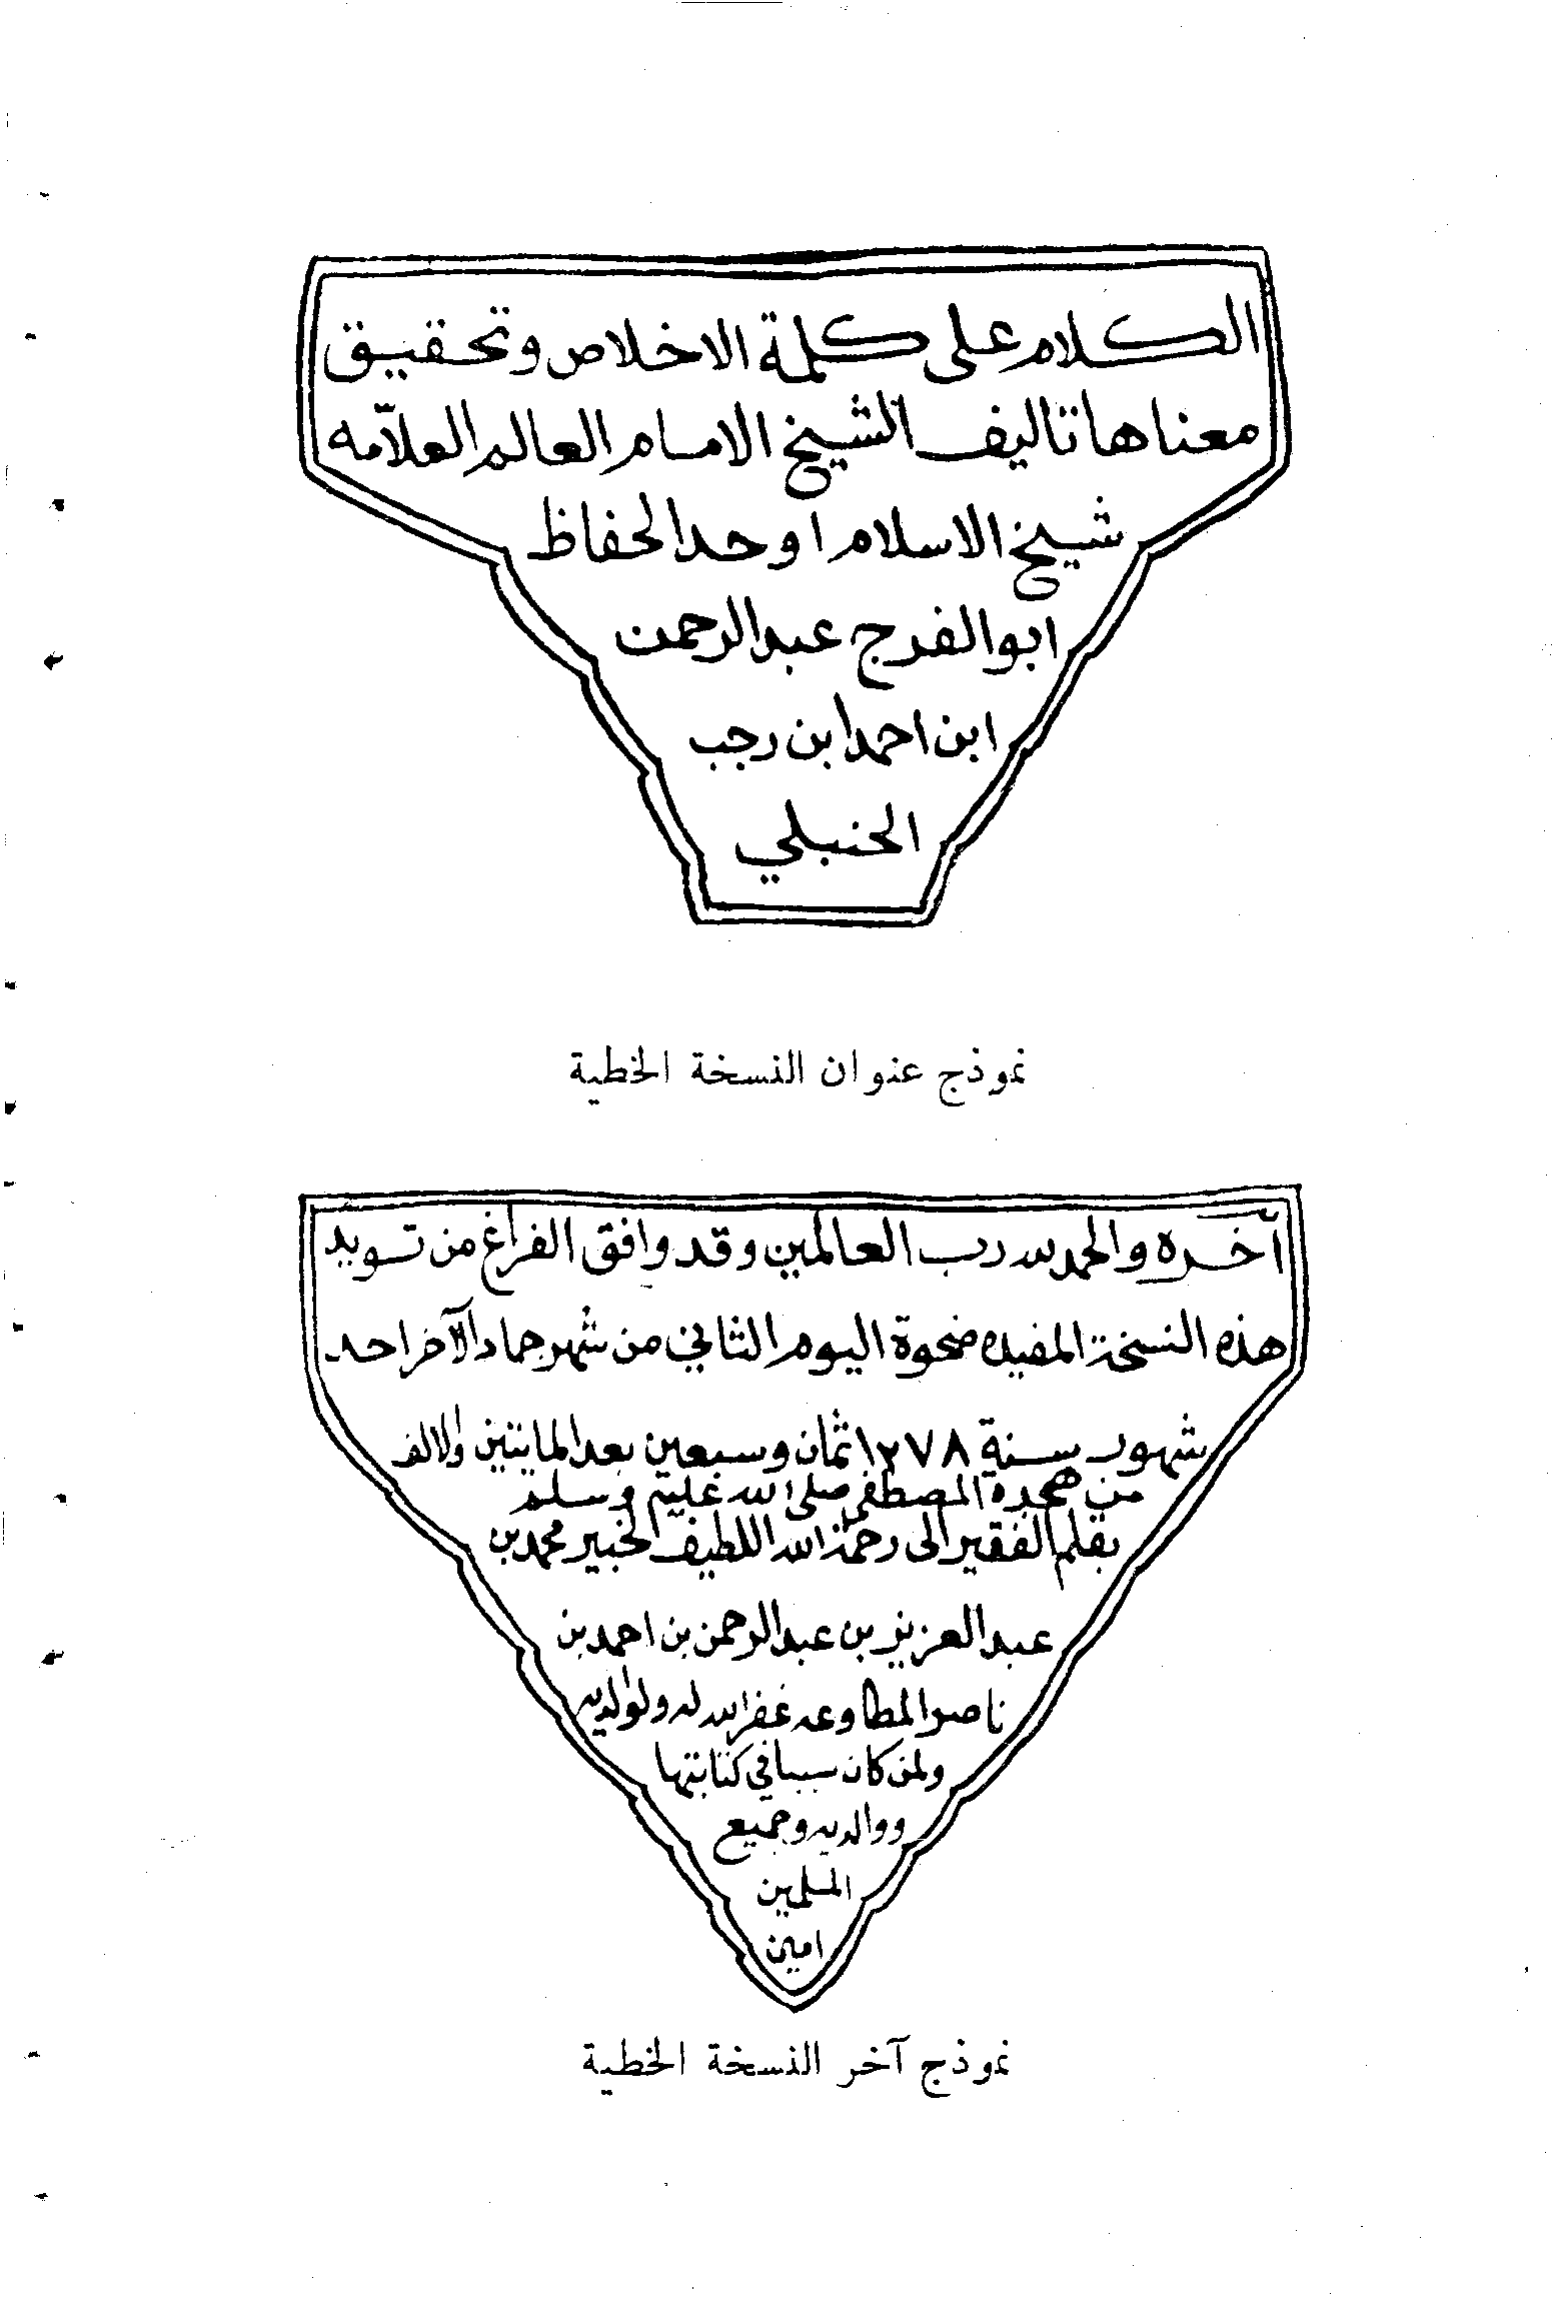 الكلام على كلمة الاخلاص وتحقيق
معناها تاليف الشيخ الامام العالم العلامّه
شيخ الاسلام اوحد الحفاظ
ابو الفرج عبد الرحمن
ابن احمد ابن رجب
الحنبلي
نموذج عنوان النسخة الخطية
آخره والحمد لله رب العالمين وقد وافق الفراغ من تسويد
هذه النسخة المفيده ضحوة اليوم الثاني من شهر جماد الآخر احد
شهور سنة ١٢٧٨ ثمان وسبعين بعد المايتين والالف
من هجرة المصطفى صلى الله عليه وسلم
بقلم الفقير الى رحمة الله اللطيف الخبير محمد بن
عبد العزيز بن عبد الرحمن بن احمد بن
ناصر المطاوعه غفر الله له ولوالديه
ولمن كان سببا في كتابتها
ووالديه وجميع
المسلمين
امين
نموذج آخر النسخة الخطية